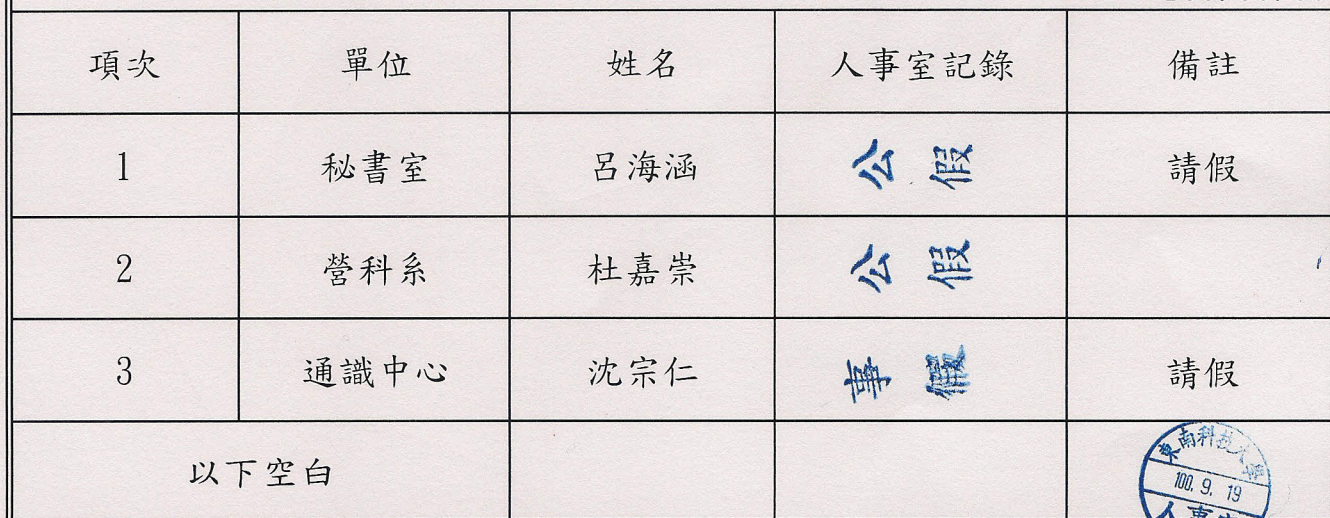 項次 單位 姓名 人事室記錄 備註
1 秘書室 呂海涵 公假 請假
2 營科系 杜嘉崇 公假
3 通識中心 沈宗仁 事假 請假
以下空白
東南科技大學
100. 9. 19
人事室